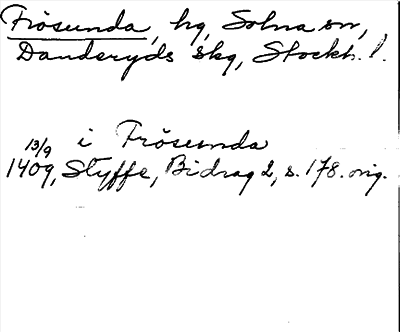 Frösunda, hg, Solna sn,
Danderyds skg, Stockh. l.
13/9 i Frösunda
1409, Styffe, Bidrag 2, s. 178. orig.